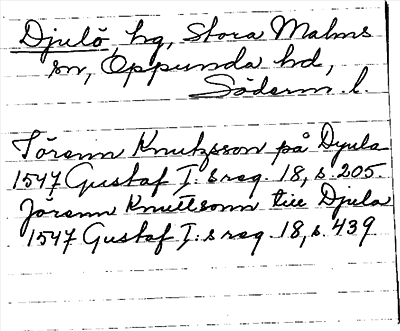 Djulö, hg, Stora Malms
sn, Oppunda hd,
Söderm. l.
Jörenn Knutzsson på Dyula
1547 Gustaf I:s reg. 18, s. 205.
Jörenn Knutssonn till Djula
1547 Gustaf I:s reg. 18, s. 439